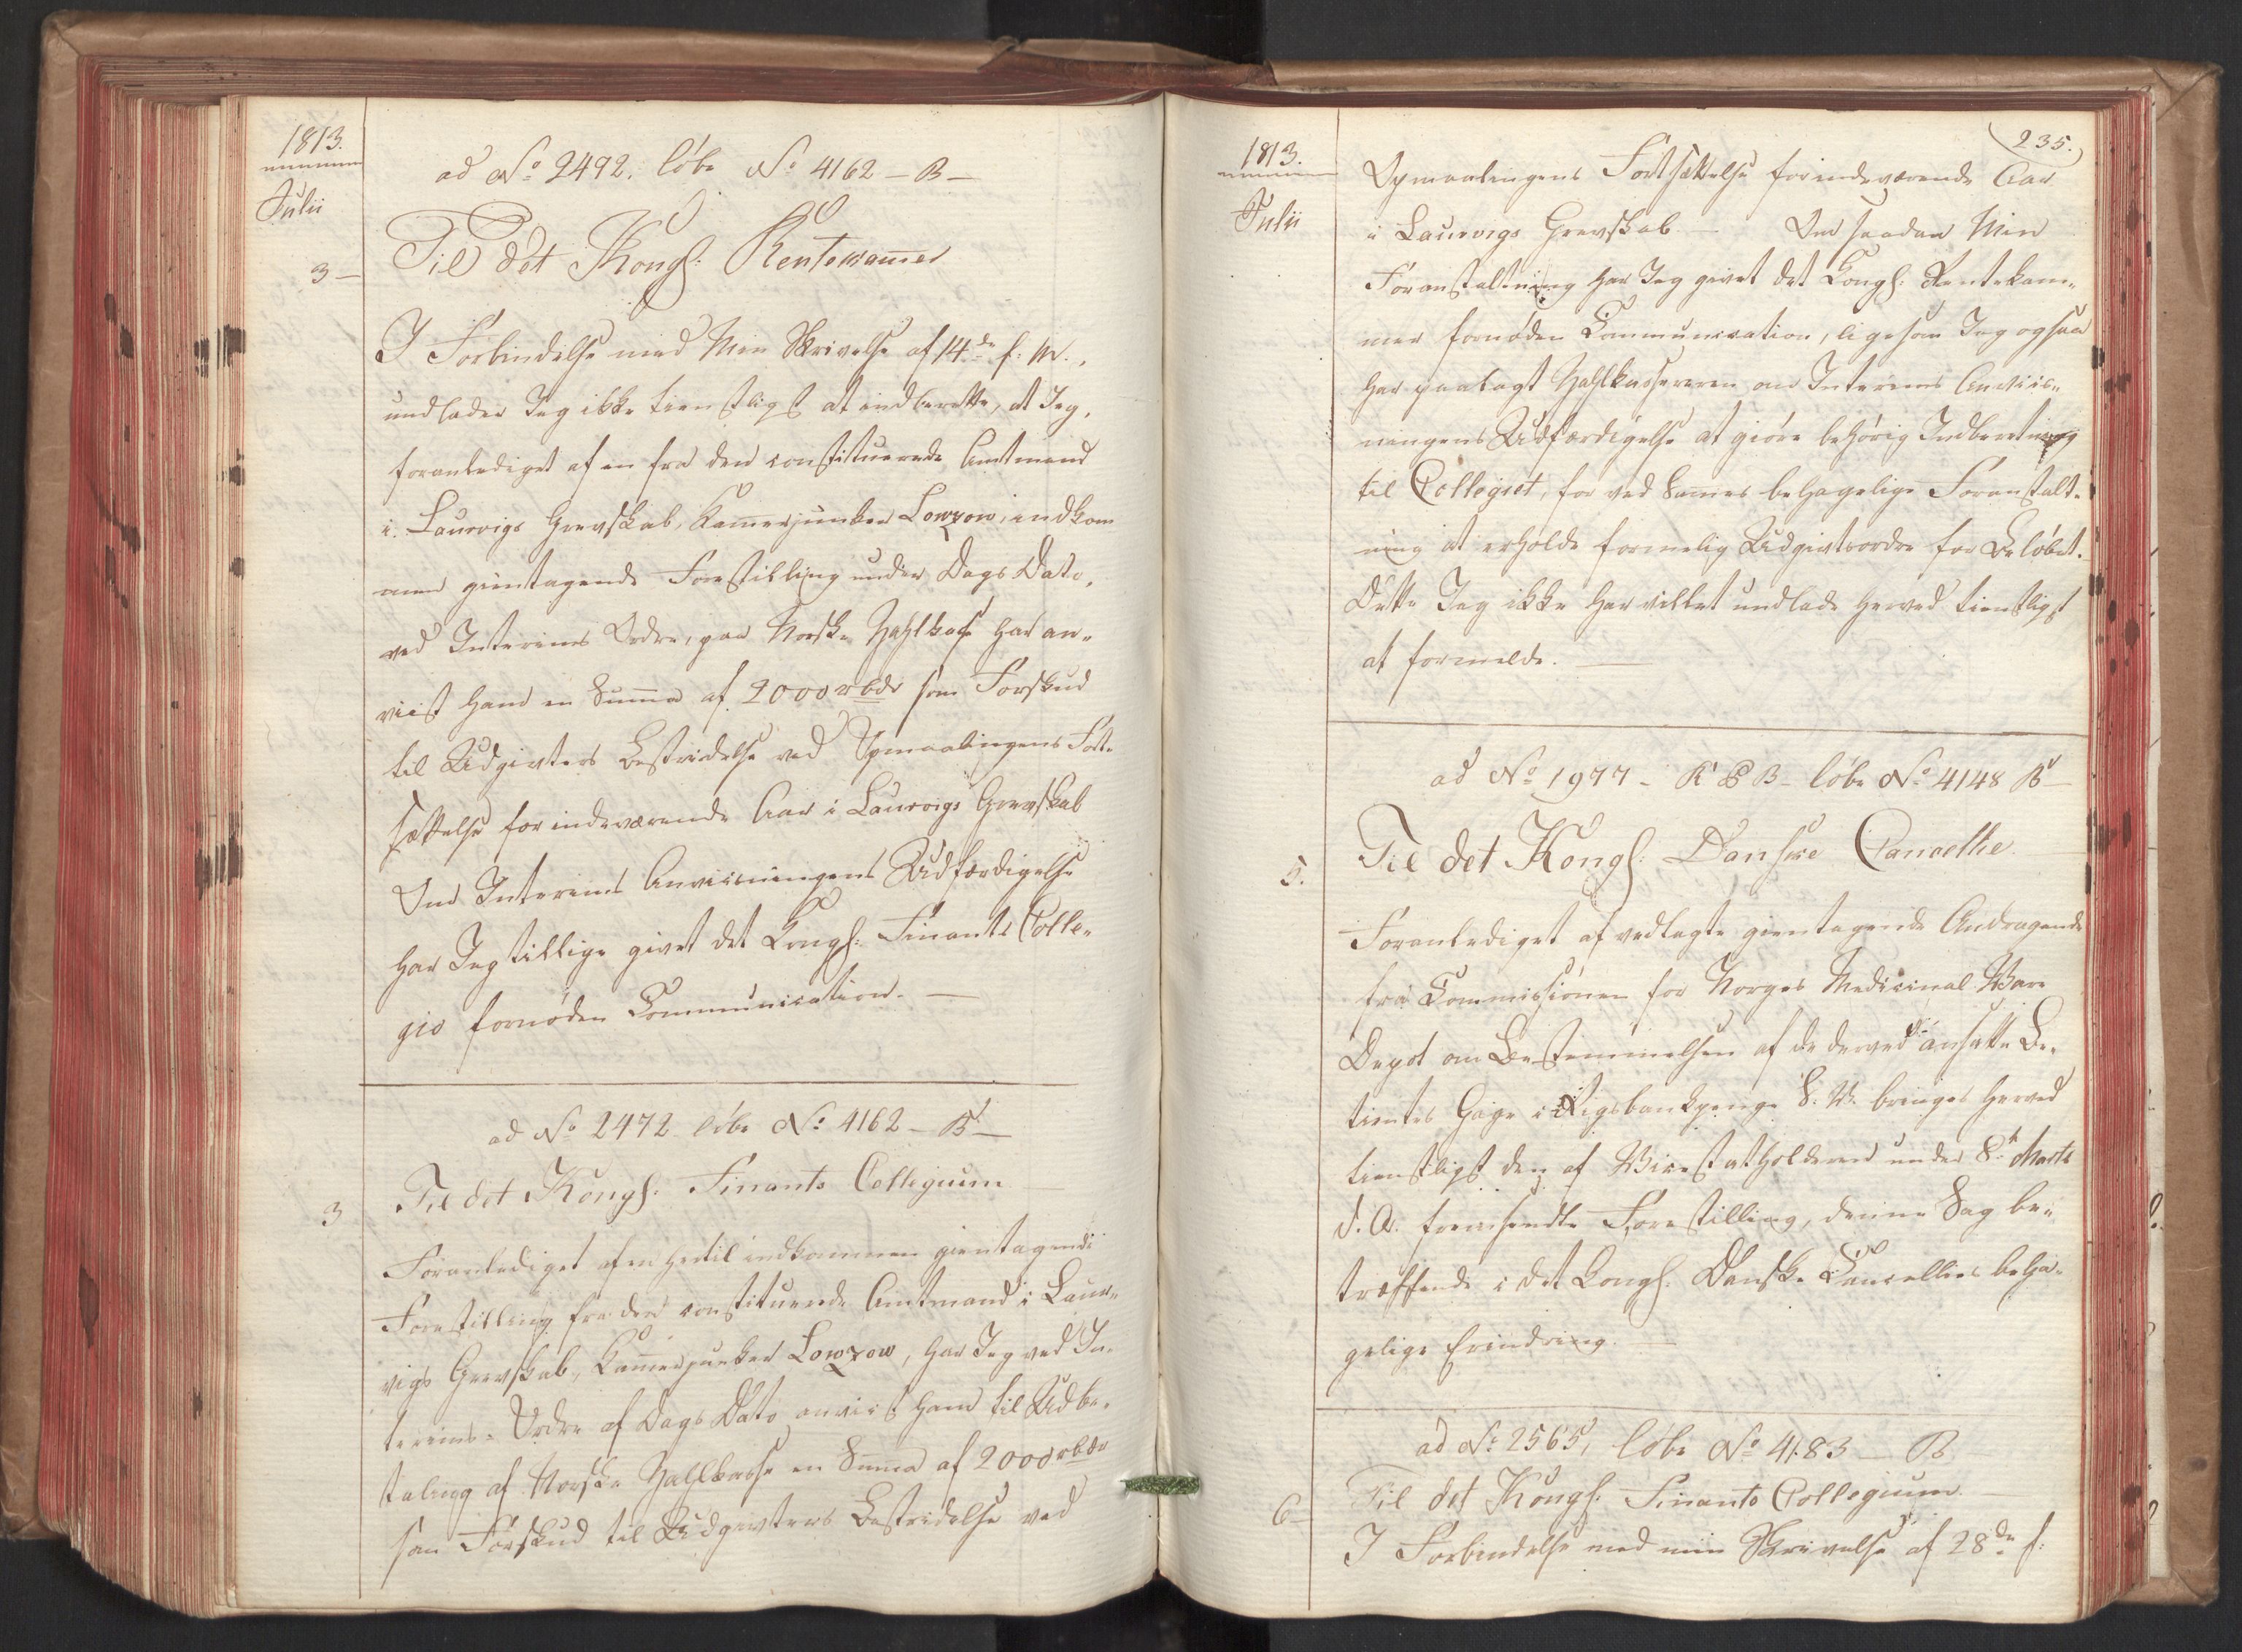 1813.
Julii
ad No 2492. løbe No 4162 - B -
3 -
Til det Kongl: Rentekammer
I Forbindelse med Min Skrivelse af 14de f: M.,
undlader Jeg ikke tienstligst at indberette, at Jeg,
foranlediget af en fra den constituerede Amtmand
i Laurvigs Grevskab, Kammerjunker Lowzow, indkom
men gientagende Forestilling under Dags Dato,
ved Interims Ordre, paa Norske Zahlkasse har an-
viist ham en Summa af 2000 rbdr som Forskud
til Udgivters Bestridelse ved Opmaalingens Fort-
sættelse for indeværende Aar i Laurvigs Grevskab
Om Interims Anviisningens Udfærdigelse
har Jeg tillige givet det Kongl: Finants Colle-
gio fornøden Communication. -
ad No 2472 løbe No 4162 - B -
3
Til det Kongl. Finants Collegium
Foranlediget af en hertil indkommen gientagende
Forestilling fra den constituerede Amtmand i Laur-
vigs Grevskab, Kammerjunker Lowzow, har Jeg ved In-
terims-Ordre af Dags Dato anviist ham til Udbe-
taling af Norske Zahlkasse en Summa af 2000 rbdr
som Forskud til Udgivters Bestridelse ved
235.
1813.
Julii
Opmaalingens Fortsættelse for indeværende Aar
i Laurvigs Grevskab - Om saadan Min
Foranstaltning har Jeg givet det Kongl: Rentekam-
mer fornøden Communication, ligesom Jeg ogsaa
har paalagt Zahlkassereren om Interims Anviis-
ningens Udfærdigelse at giøre behørig Indberetning
til Collegiet, for ved Sammes behagelige Foranstalt-
ning at erholde formelig Udgivtsordre for Beløbet.
Dette Jeg ikke har villet undlade herved tienstligst
at formelde. -
ad No 1977 - K & B - løbe No 4148 B -
5.
Til det Kongl: Danske Cancellie
Foranlediget af vedlagte gientagende Andragende
fra Commissionen for Norges Medicinal Ware
Depot om Bestemmelsen af de derved ansatte Be-
tientes Gage i Rigsbankpenge S. V. bringes herved
tienstligst den af Vicestatholderen under 8de Marts
d. A. fremsendte Forestilling, denne Sag be-
træffende i det Kongl. Danske Cancellies beha-
gelige Erindring. -
ad No 2565, løbe No 4183 - B
6 -
Til det Kongl. Finants Collegium. -
I Forbindelse med min Skrivelse af 28de f: